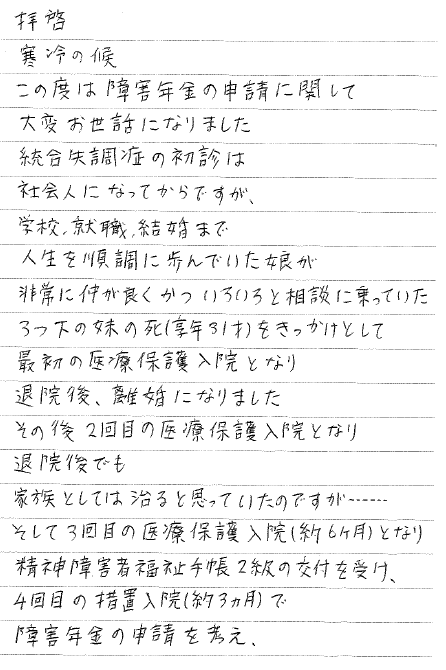 拝啓
寒冷の候
この度は障害年金の申請に関して
大変お世話になりました
統合失調症の初診は
社会人になってからですが、
学校、就職、結婚まで
人生を順調に歩んでいた娘が
非常に仲が良くかついろいろと相談に乗っていた
3つ下の妹の死(享年31才)をきっかけとして
最初の医療保護入院となり
退院後、離婚になりました
その後2回目の医療保護入院となり
退院後でも
家族としては治ると思っていたのですが……
そして3回目の医療保護入院(約6ヶ月)となり
精神障害者福祉手帳2級の交付を受け、
4回目の措置入院(約3ヵ月)で
障害年金の申請を考え、